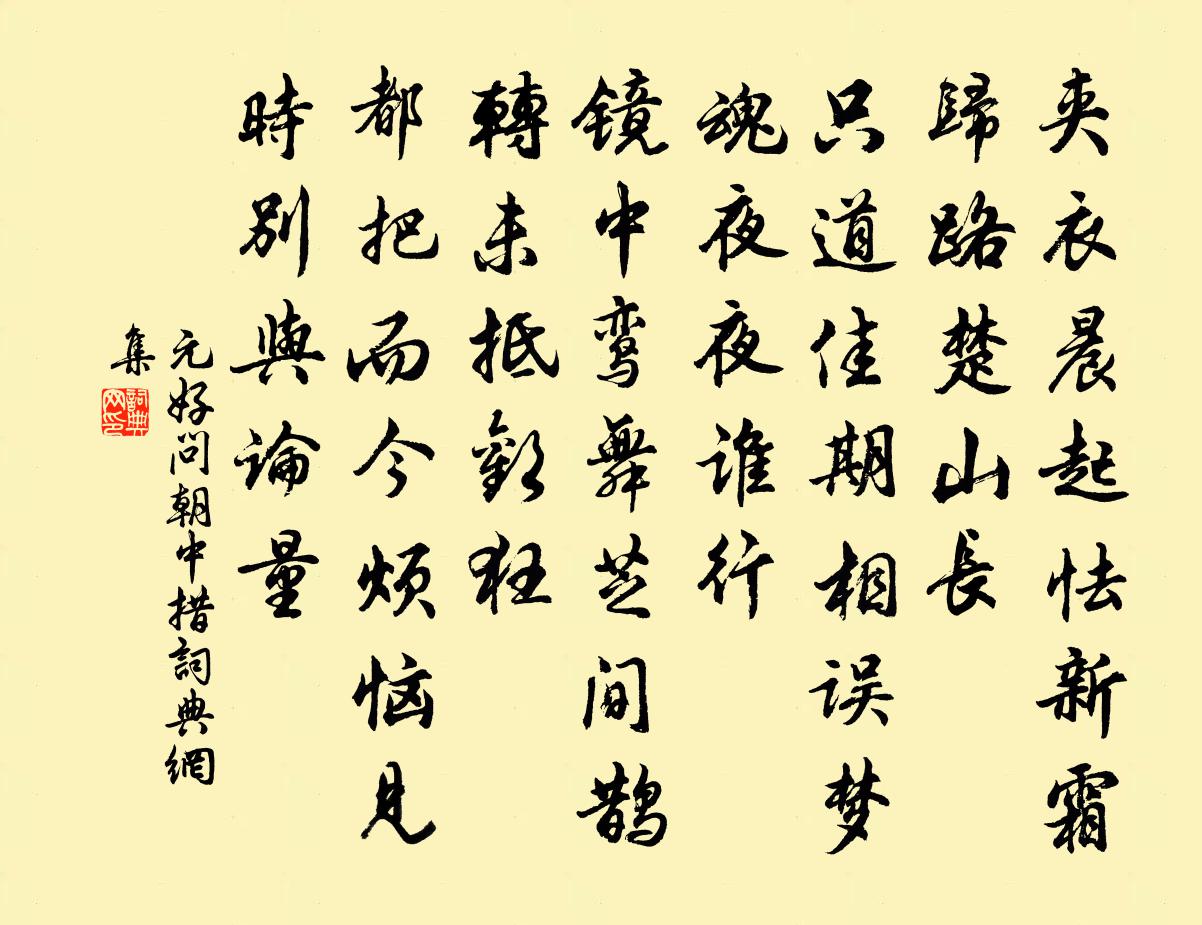 夹衣晨起怯新霜
歸路楚山長
只道佳期相误梦
魂夜夜谁行
镜中鸾舞芝间鹊
轉未抵歡狂
都把而今烦恼見
時别與論量
元好问朝中措詞典網
集
詞典网印